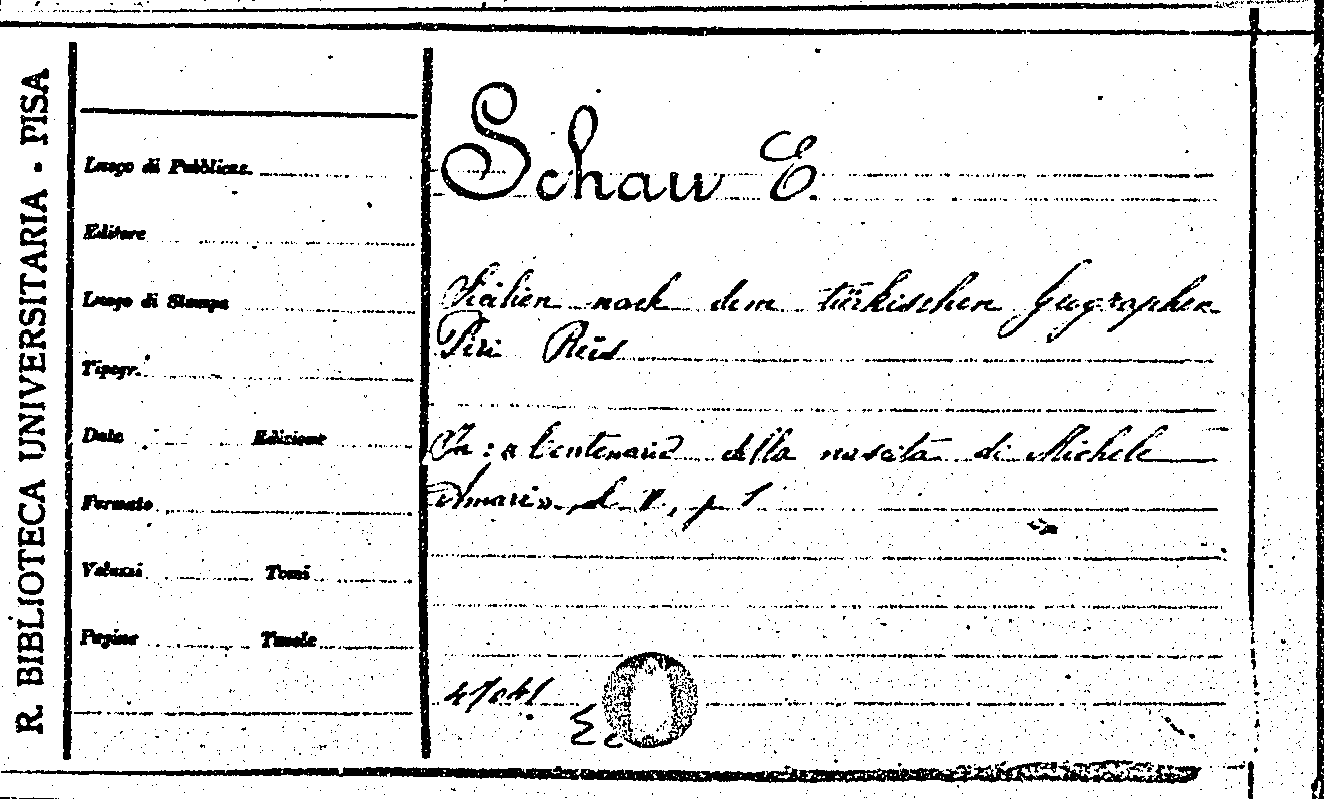 R. BIBLIOTECA UNIVERSITARIA - PISA
Luogo di Pubblicaz.
Editore
Luogo di Stampa
Tipogr.
Data Edizione
Formato
Volumi Tomi
Pagine Tavole
Schaw E.
Sicilien nach dem türkischen Geographen
Piri Reïs
In: « Centenario della nascita di Michele
Amari », p. 1